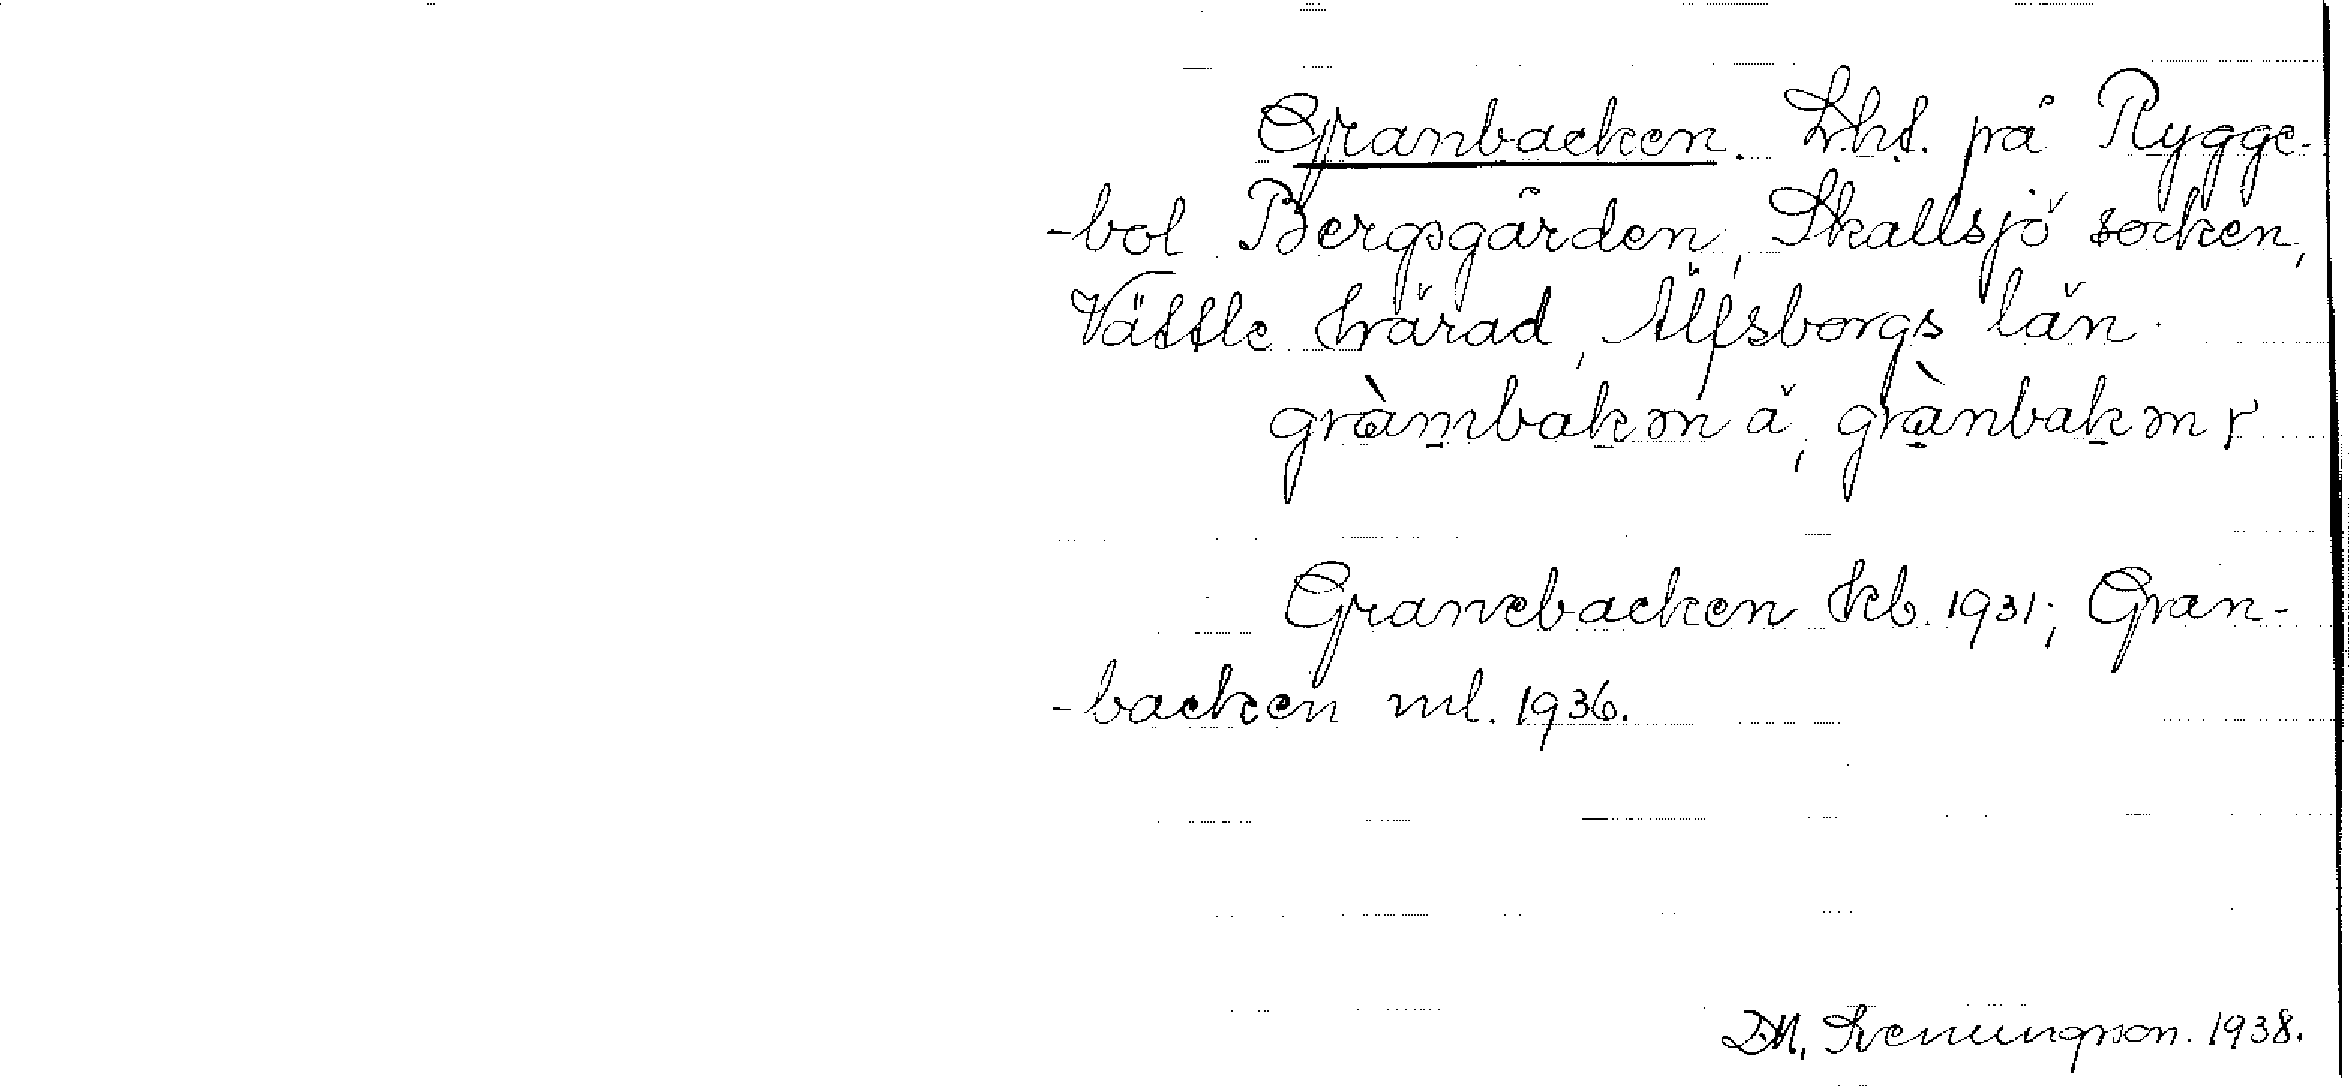 Granbacken. Lht. på Rygge-
-bol Bergsgården, Skallsjö socken,
Vättle härad, Älfsborgs län.
gràmbakən ä, grànbakən r
Granebacken kb. 1931; Gran-
-backen ml. 1936.
D.N. Svenningson. 1938.